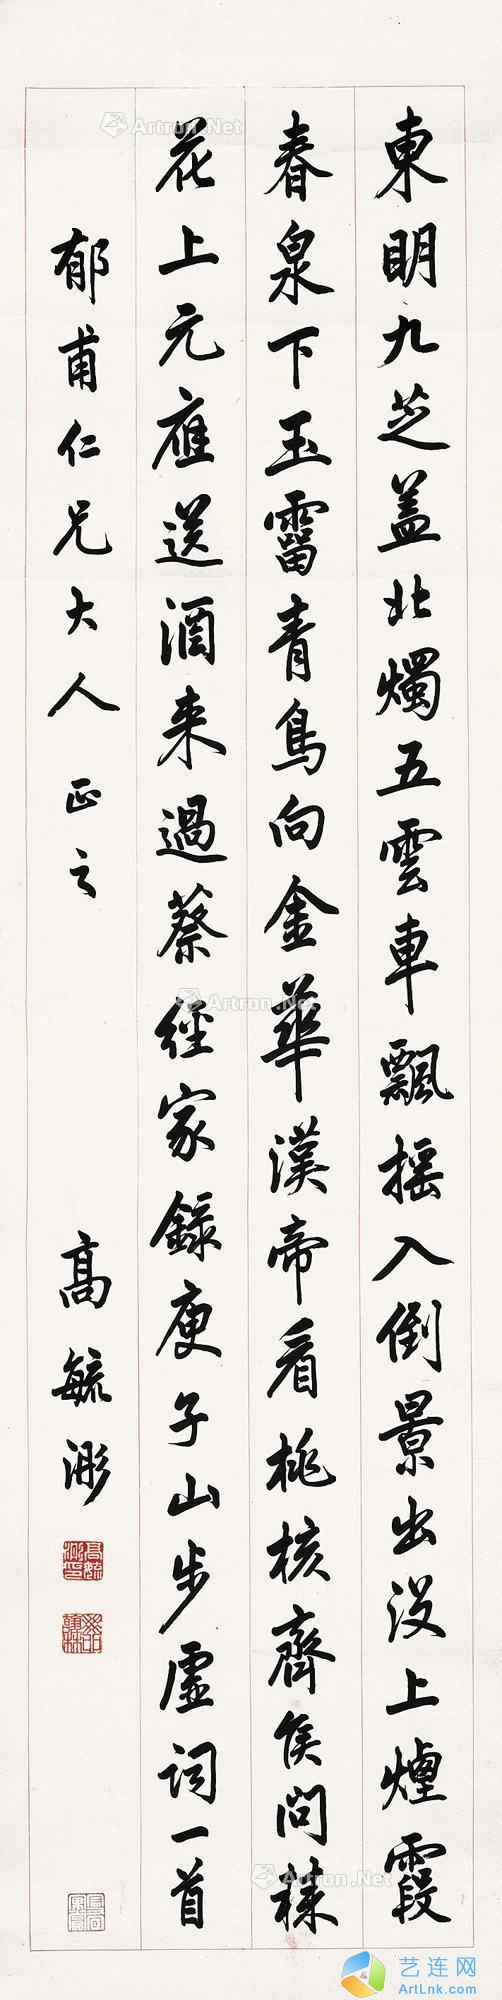 東明九芝盖北燭五雲車飄摇入倒景出没上煙霞
春泉下玉霤青鳥向金華漢帝看桃核齊侯問棗
花上元應送酒来過蔡經家録庾子山步虚詞一首
郁甫仁兄大人正之
高毓浵
Artron.Net
Artron.Net
Artron.Net
Artron.Net
艺连网
ArtLnk.com